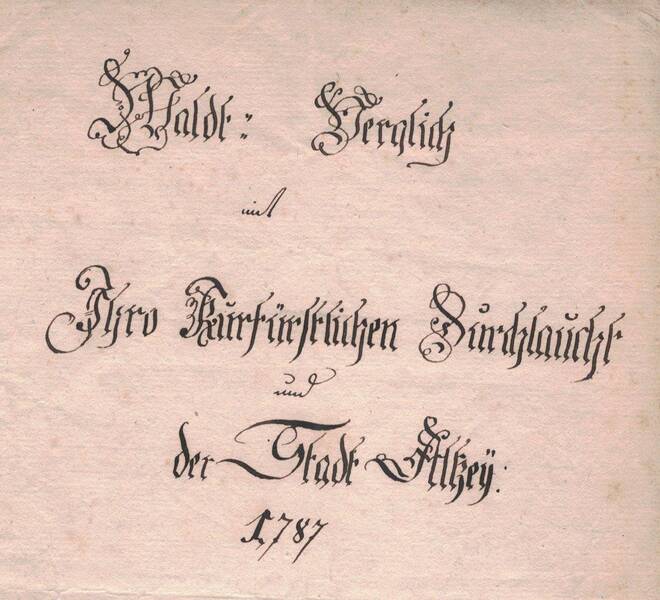 Waldt: Verglich
mit
Ihro Kurfürstlichen Durchlaucht
und
der Stadt Altzeÿ:
1787